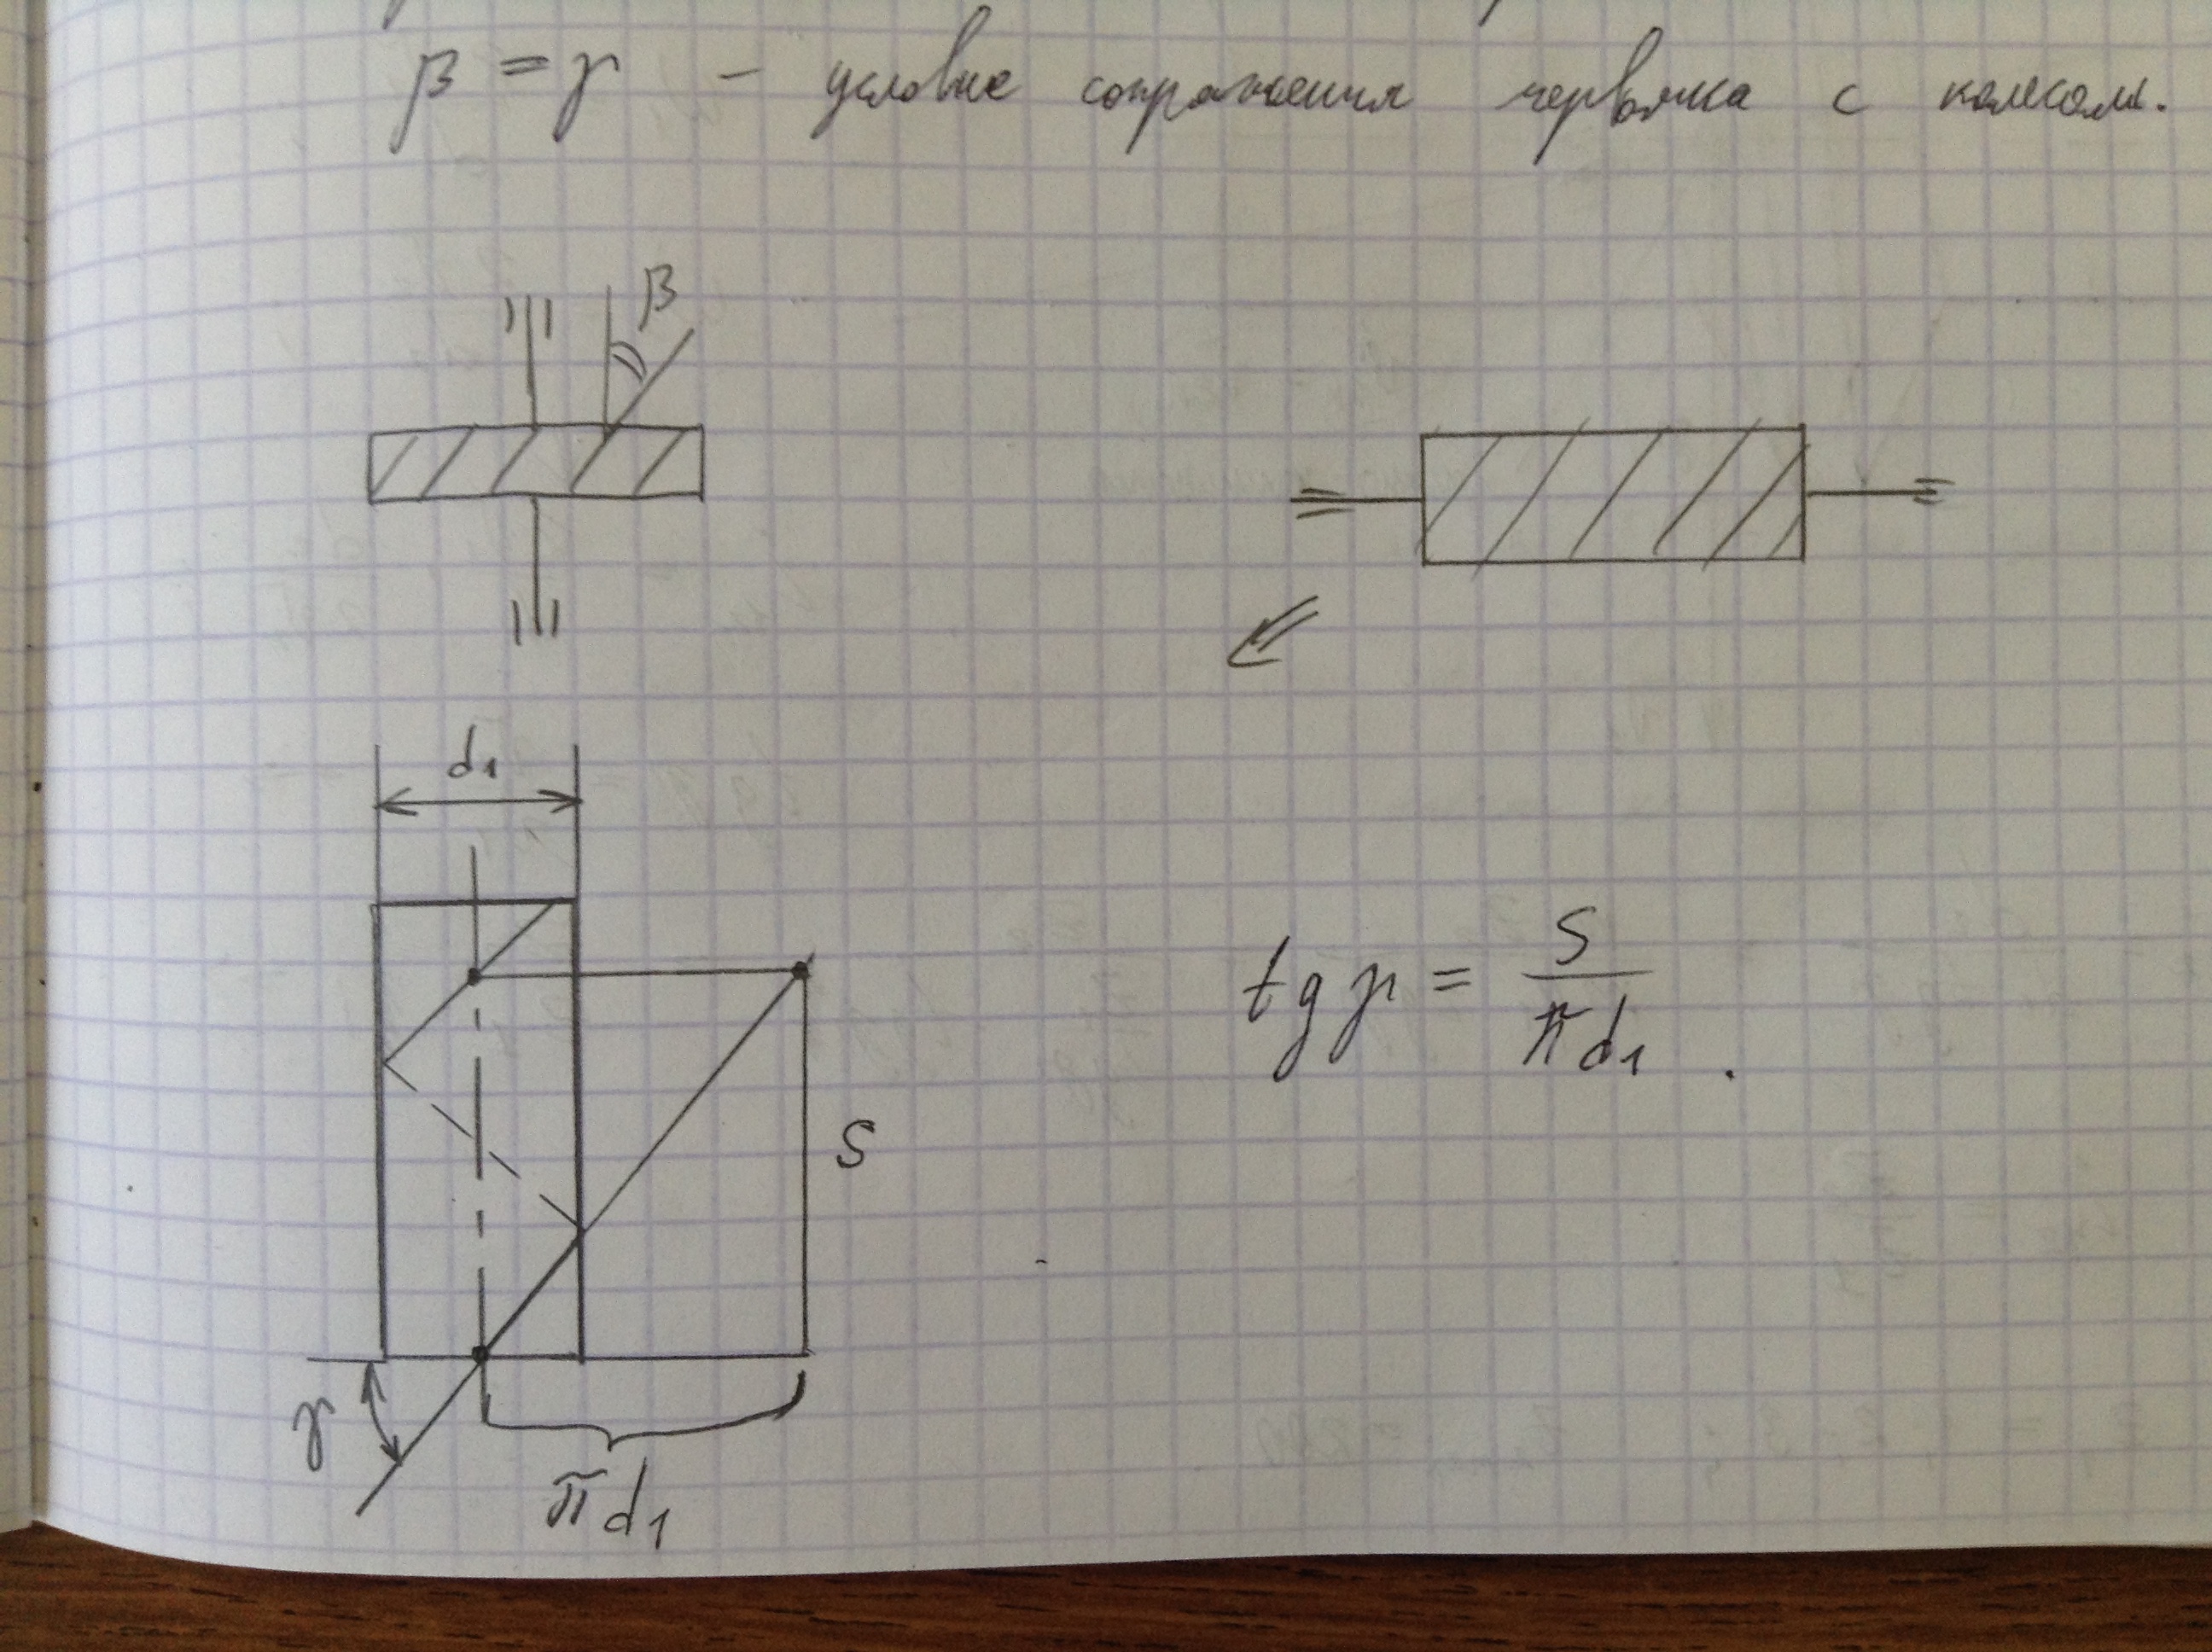 β = γ – условие сопряжения червяка с колесом.
β
d₁
tg γ = S / πd₁ .
S
γ
πd₁